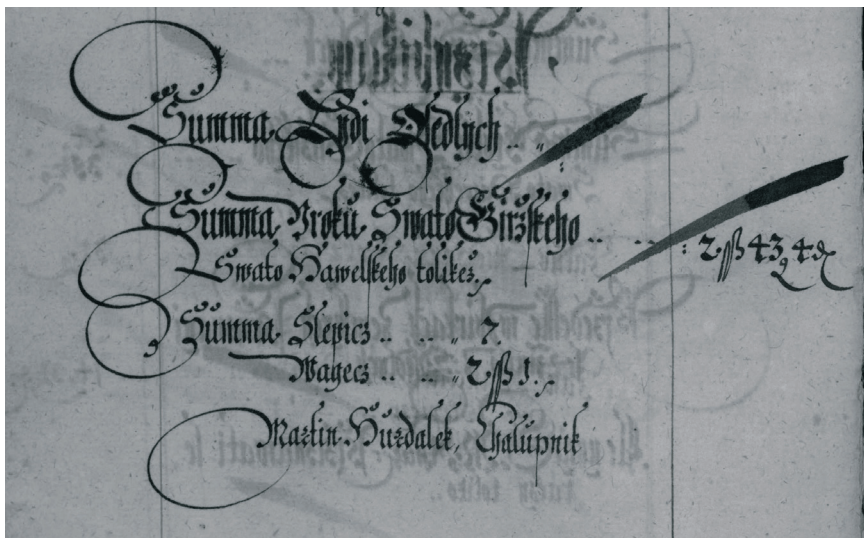 Summa Lydi Osedlych .. „
Summa Uroku Swato Giržskeho .. .. : 2 ß 43 g 4 d
Swato Hawelskeho tolikež
Summa Slepicz .. .. „ 2.
Wagecz .. .. „ 2 ß 1.
Martin Hurdalek, Chalupnik